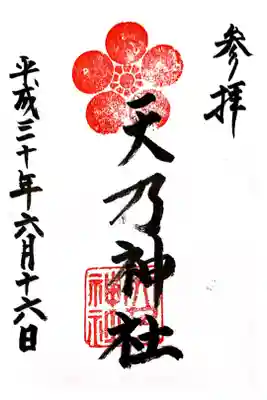 参拝
天乃神社
平成三十年六月十六日